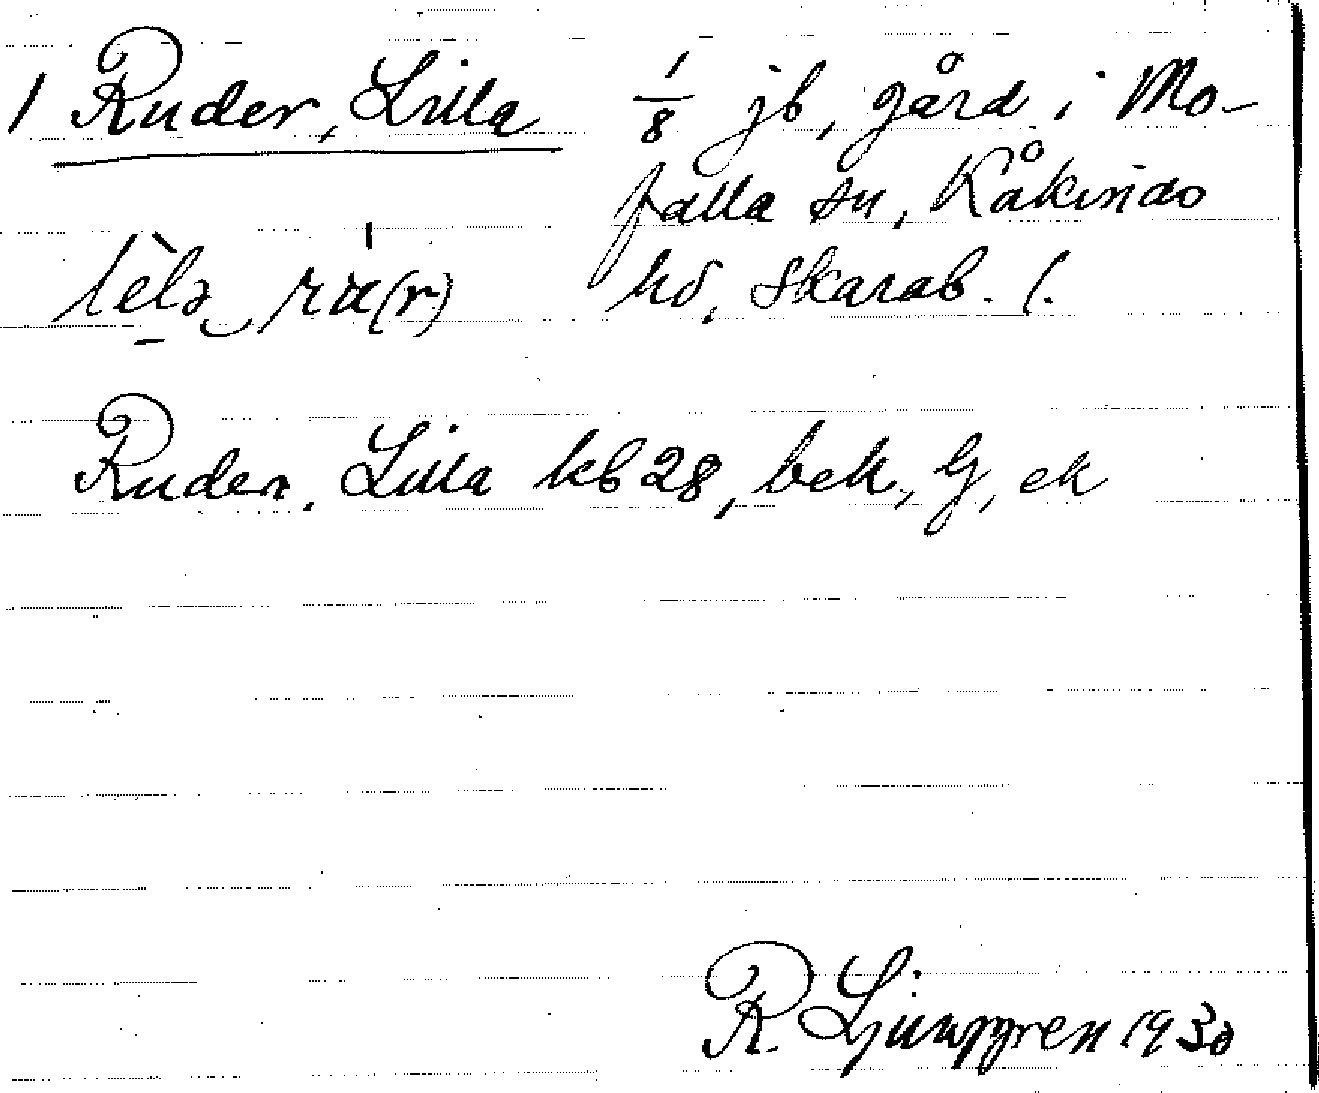 1 Ruder, Lilla 1/8 jb, gård i Mo-
falla sn, Kåkinds
lèlə rʉ(r) hd, Skarab. l.
Ruder, Lilla kb 28, bek, G, ek
R. Ljunggren 1930